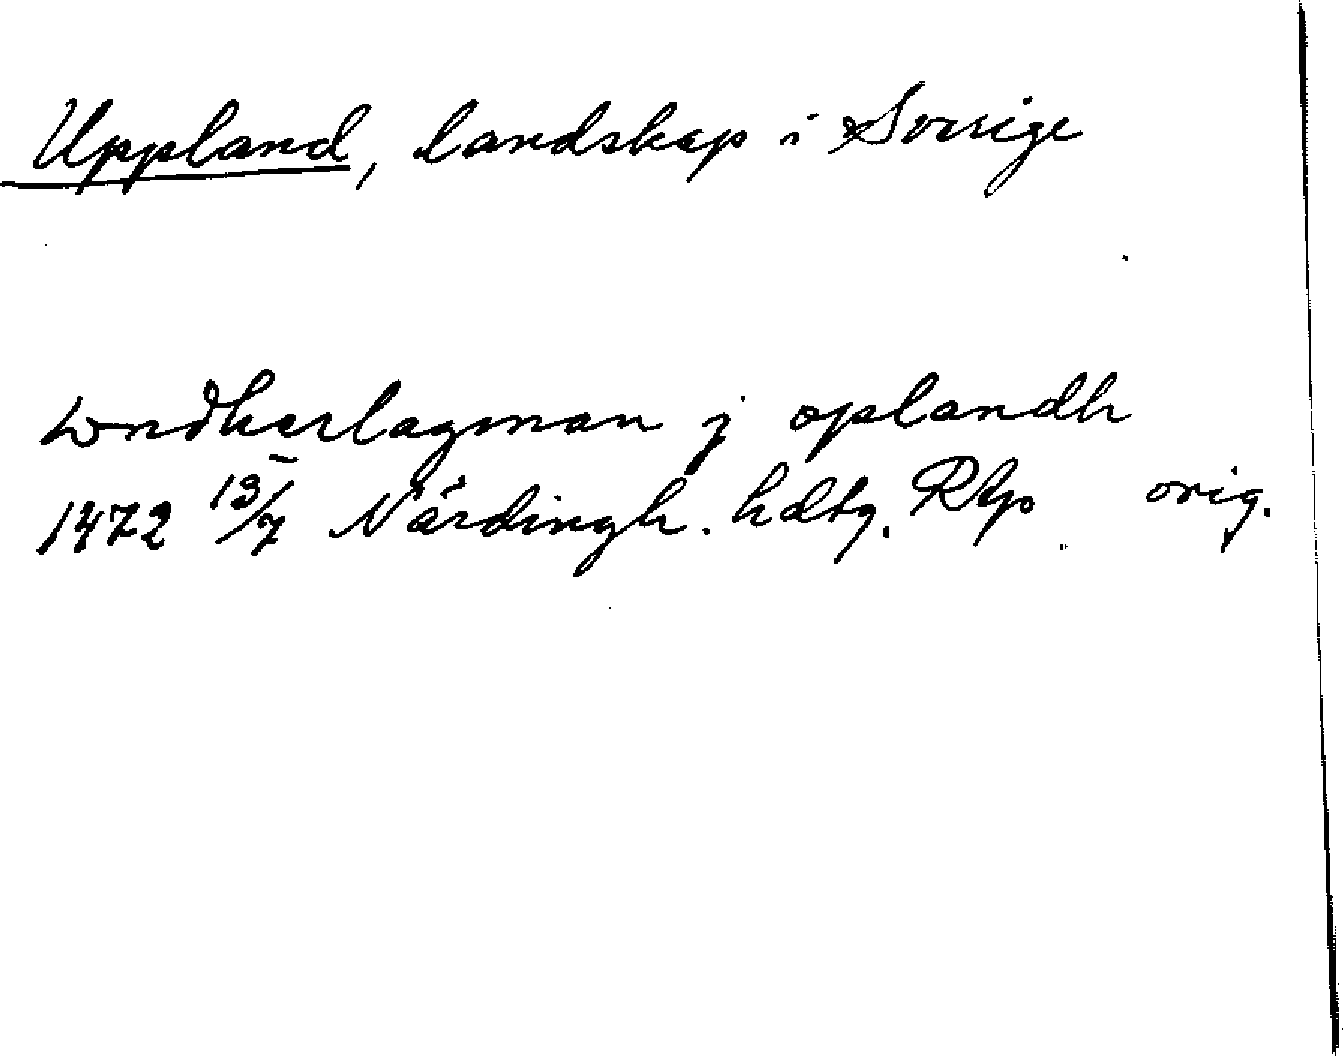 Uppland, landskap i Sverige
wndherlagman j oplandh
1472 13/7 Närdingh. hdtg. RAp orig.